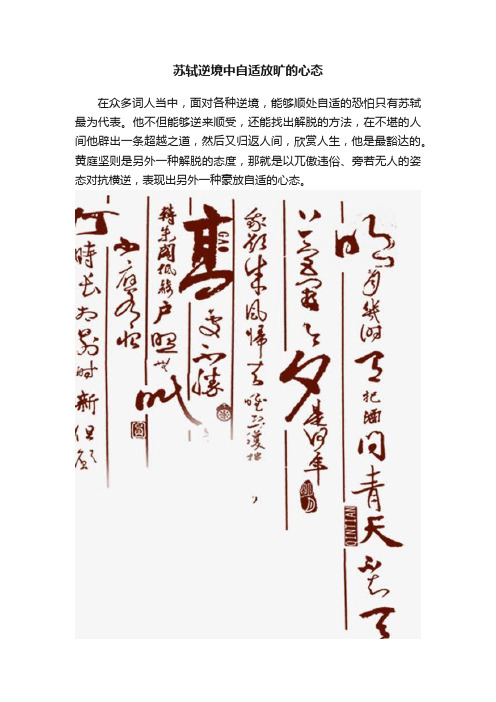 苏轼逆境中自适放旷的心态
在众多词人当中，面对各种逆境，能够顺处自适的恐怕只有苏轼
最为代表。他不但能够逆来顺受，还能找出解脱的方法，在不堪的人
间他辟出一条超越之道，然后又归返人间，欣赏人生，他是最豁达的。
黄庭坚则是另外一种解脱的态度，那就是以兀傲违俗、旁若无人的姿
态对抗横逆，表现出另外一种豪放自适的心态。
明月幾時有把酒問青天不知天
QINTIAN
上宫阙今夕是何年
我欲乘風歸去唯恐
高处不勝
GAO
轉朱閣低綺户照無眠
不應有恨
何時长向别時
但願